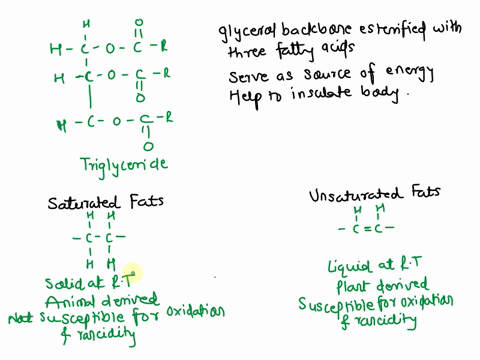 H O
H - C - O - C - R
H - C - O - C - R
O
H - C - O - C - R
O
Triglyceride
glycerol backbone esterified with
three fatty acids
Serve as source of energy
Help to insulate body.
Saturated Fats
H H
- C - C -
H H
Solid at R.T
Animal derived
Not Susceptible for oxidation
& rancidity
Unsaturated Fats
H H
- C = C -
Liquid at R.T
Plant derived
Susceptible for oxidation
& rancidity